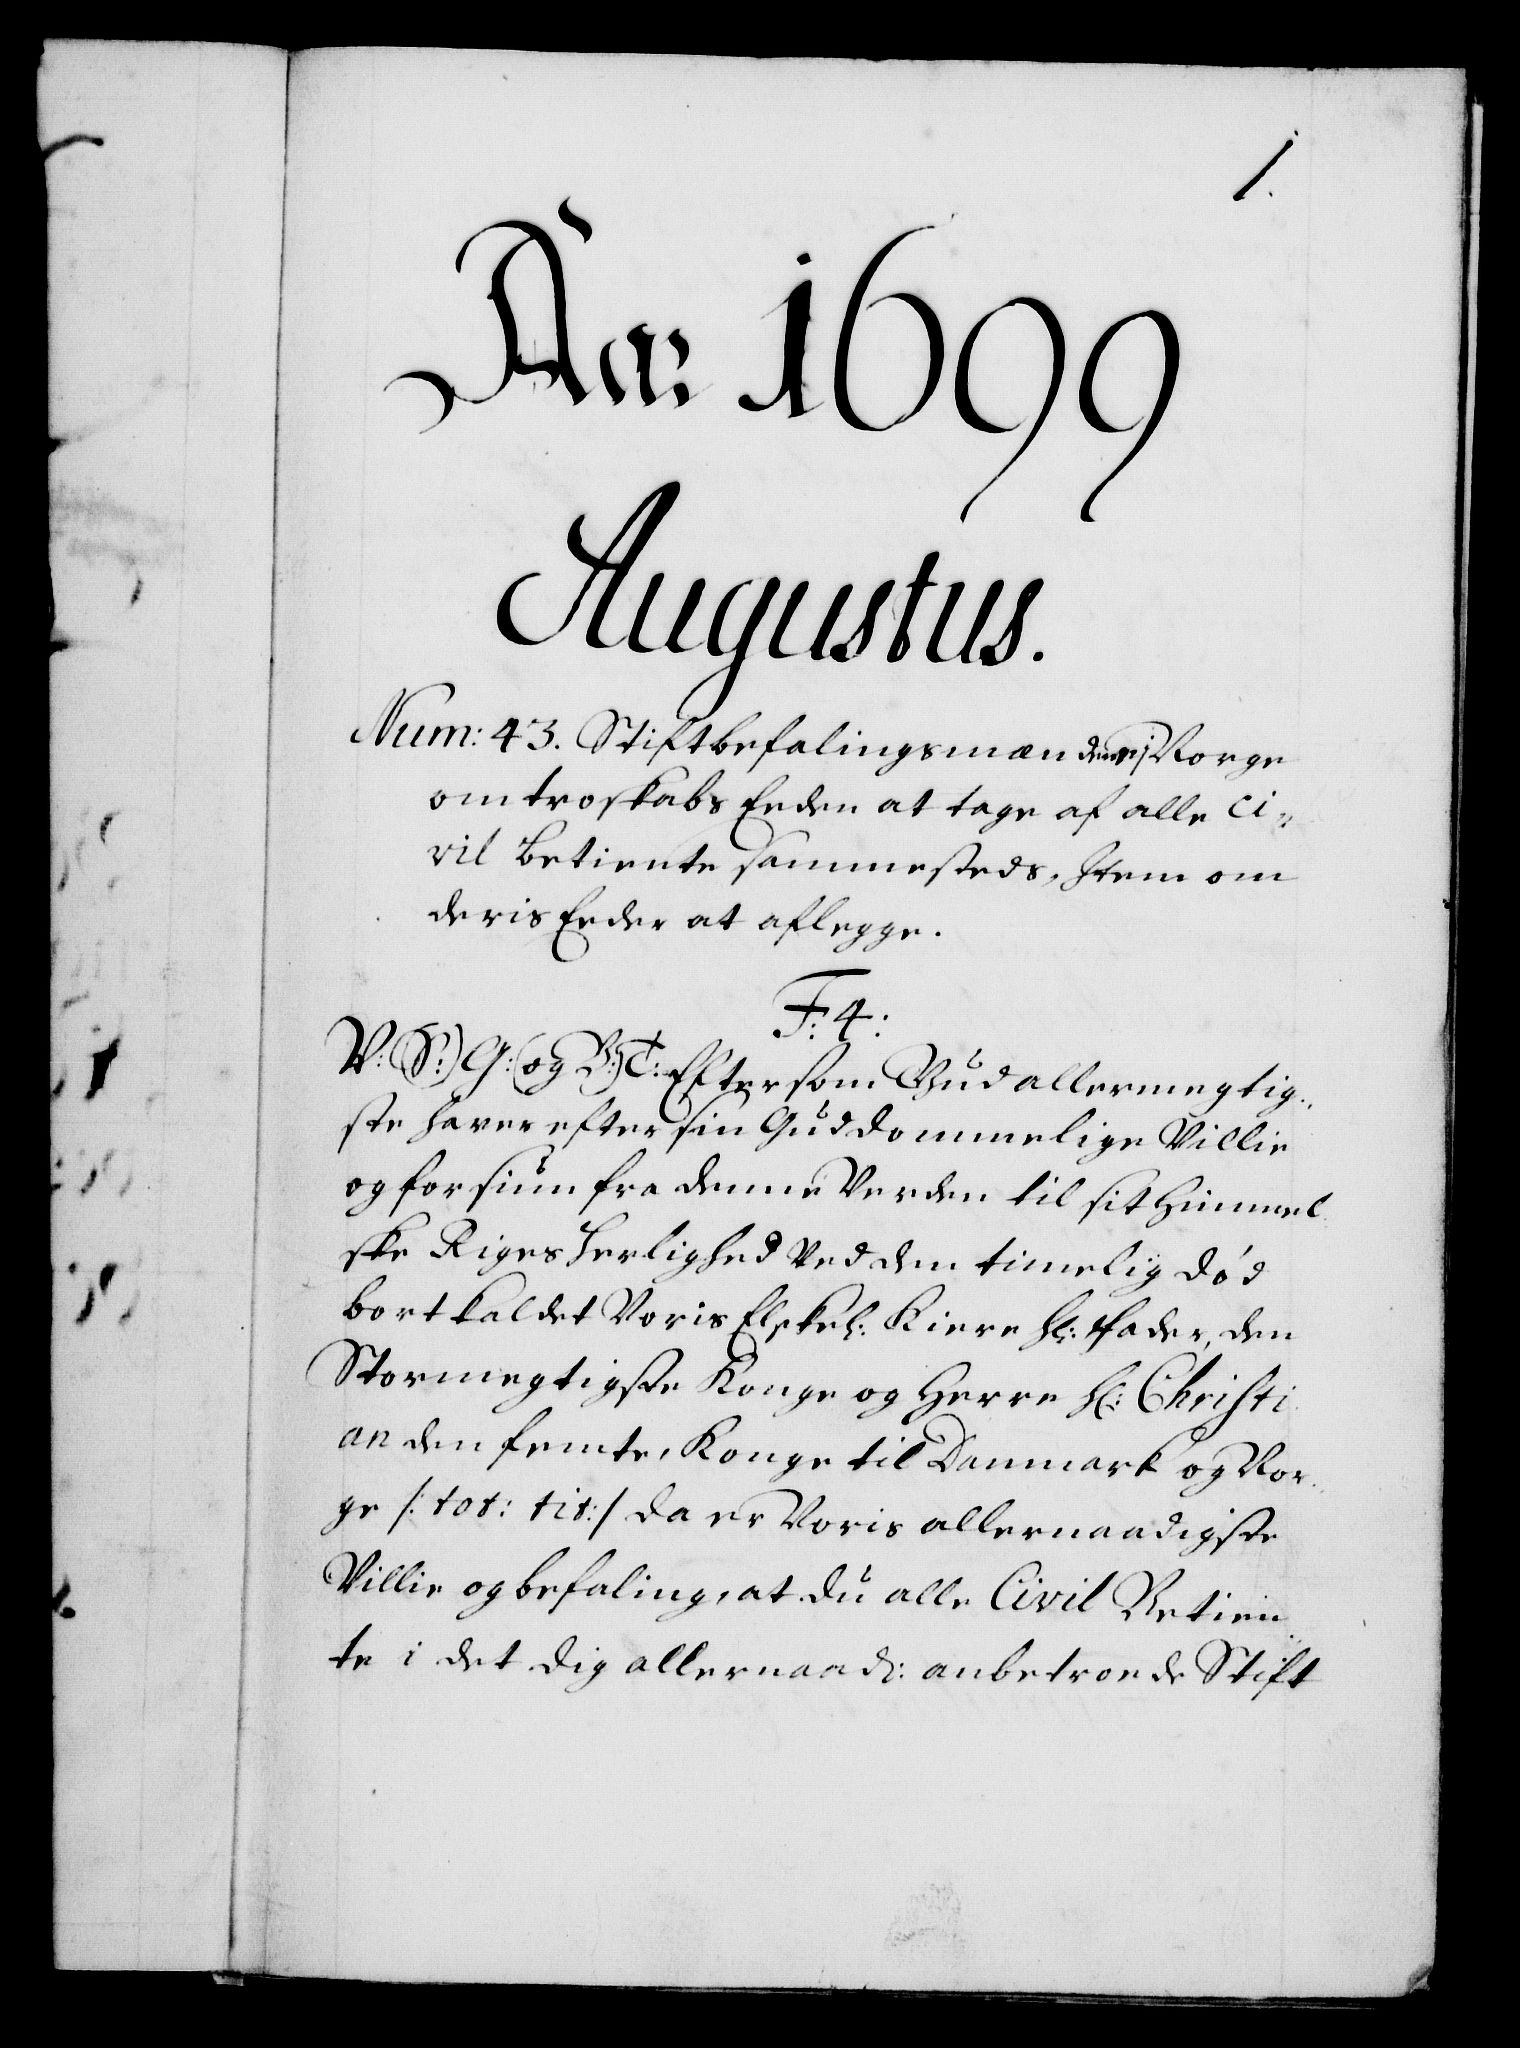 1.
Aar 1699
Augustus.
Num: 43. Stiftbefalingsmændene i Norge
om troskabs Eeden at tage af alle Ci¬
vil betiente sammesteds, Item om
deris Eeder at aflegge.
F: 4:
V: (S:) G: (og B:) T: Eftersom Gud allermegtig¬
ste haver efter sin Guddommelige Villie
og forsiun fra denne Verden til sit Himmel
ske Riges Herlighed ved den timelig død
bortkaldet Voris Elskel: Kiere Hr: Fader, den
Stormegtigste Konge og Herre Hr: Christi
an den femte, Konge til Danmark og Nor¬
ge /: tot: tit: / da er Voris allernaadigste
Villie og befaling, at du alle Civil Betien
te i det dig allernaad: anbetroede Stift